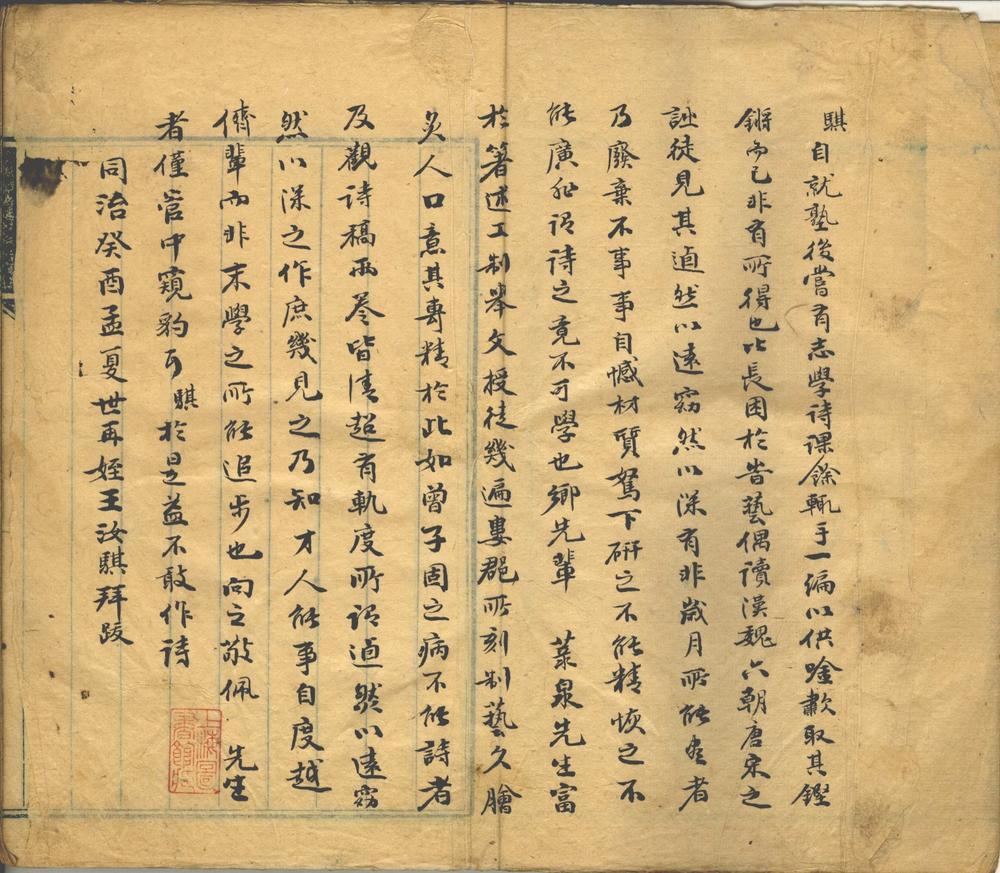 騏自就塾後嘗有志學詩課餘輒手一編以供唫歗取其鏗
鏘而已非有所得也比長困於告藝偶讀漢魏六朝唐宋之
詩徒見其逌然以遠窈然以深有非歲月所能盡者
乃廢棄不事事自憾材質駑下研之不能精恢之不
能廣所謂詩之竟不可學也鄉先輩 菉泉先生富
於著述工制舉文授徒幾遍婁郡所刻制藝久膾
炙人口意其專精於此如曾子固之病不能詩者
及觀詩稿兩卷皆清超有軌度所謂逌然以遠窈
然以深之作庶幾見之乃知才人能事自度越
儕輩而非末學之所能追步也向之敬佩 先生
者僅管中窺豹耳騏於是益不敢作詩
同治癸酉孟夏世再姪王汝騏拜跋
上海圖
書館藏